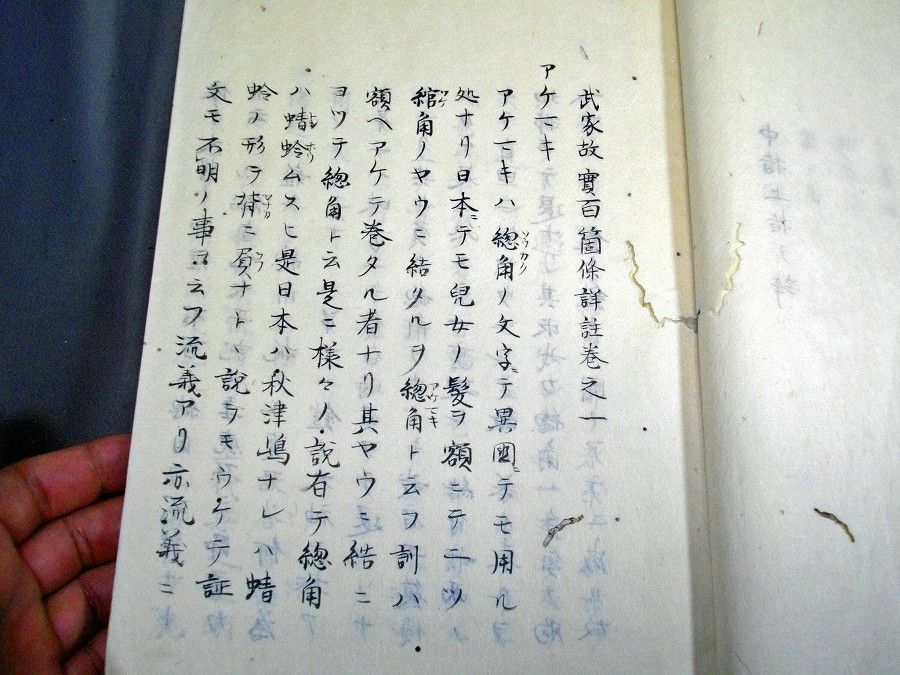 武家故實百箇條詳註巻之一
アケマキ
アケマキハ總角ノ文字ニテ異國ニテモ用ル
処ナリ日本ニテモ兒女ノ髪ヲ額ニテニツ
綰角ノヤウニ結タルヲ總角ト云フ訓ハ
額ヘアケテ巻タル者ナリ其ヤウニ結ニ
ヨツテ總角ト云是ニ様々ノ説有テ總角
ハ蜻蛉ムスヒ是日本ハ秋津嶋ナレハ蜻
蛉ノ形ヲ背ニ負ナト説ヲモウケテ証
文モ不明ノ事ヲ云フ流義アリ亦流義ニ
中指上指ノ辨